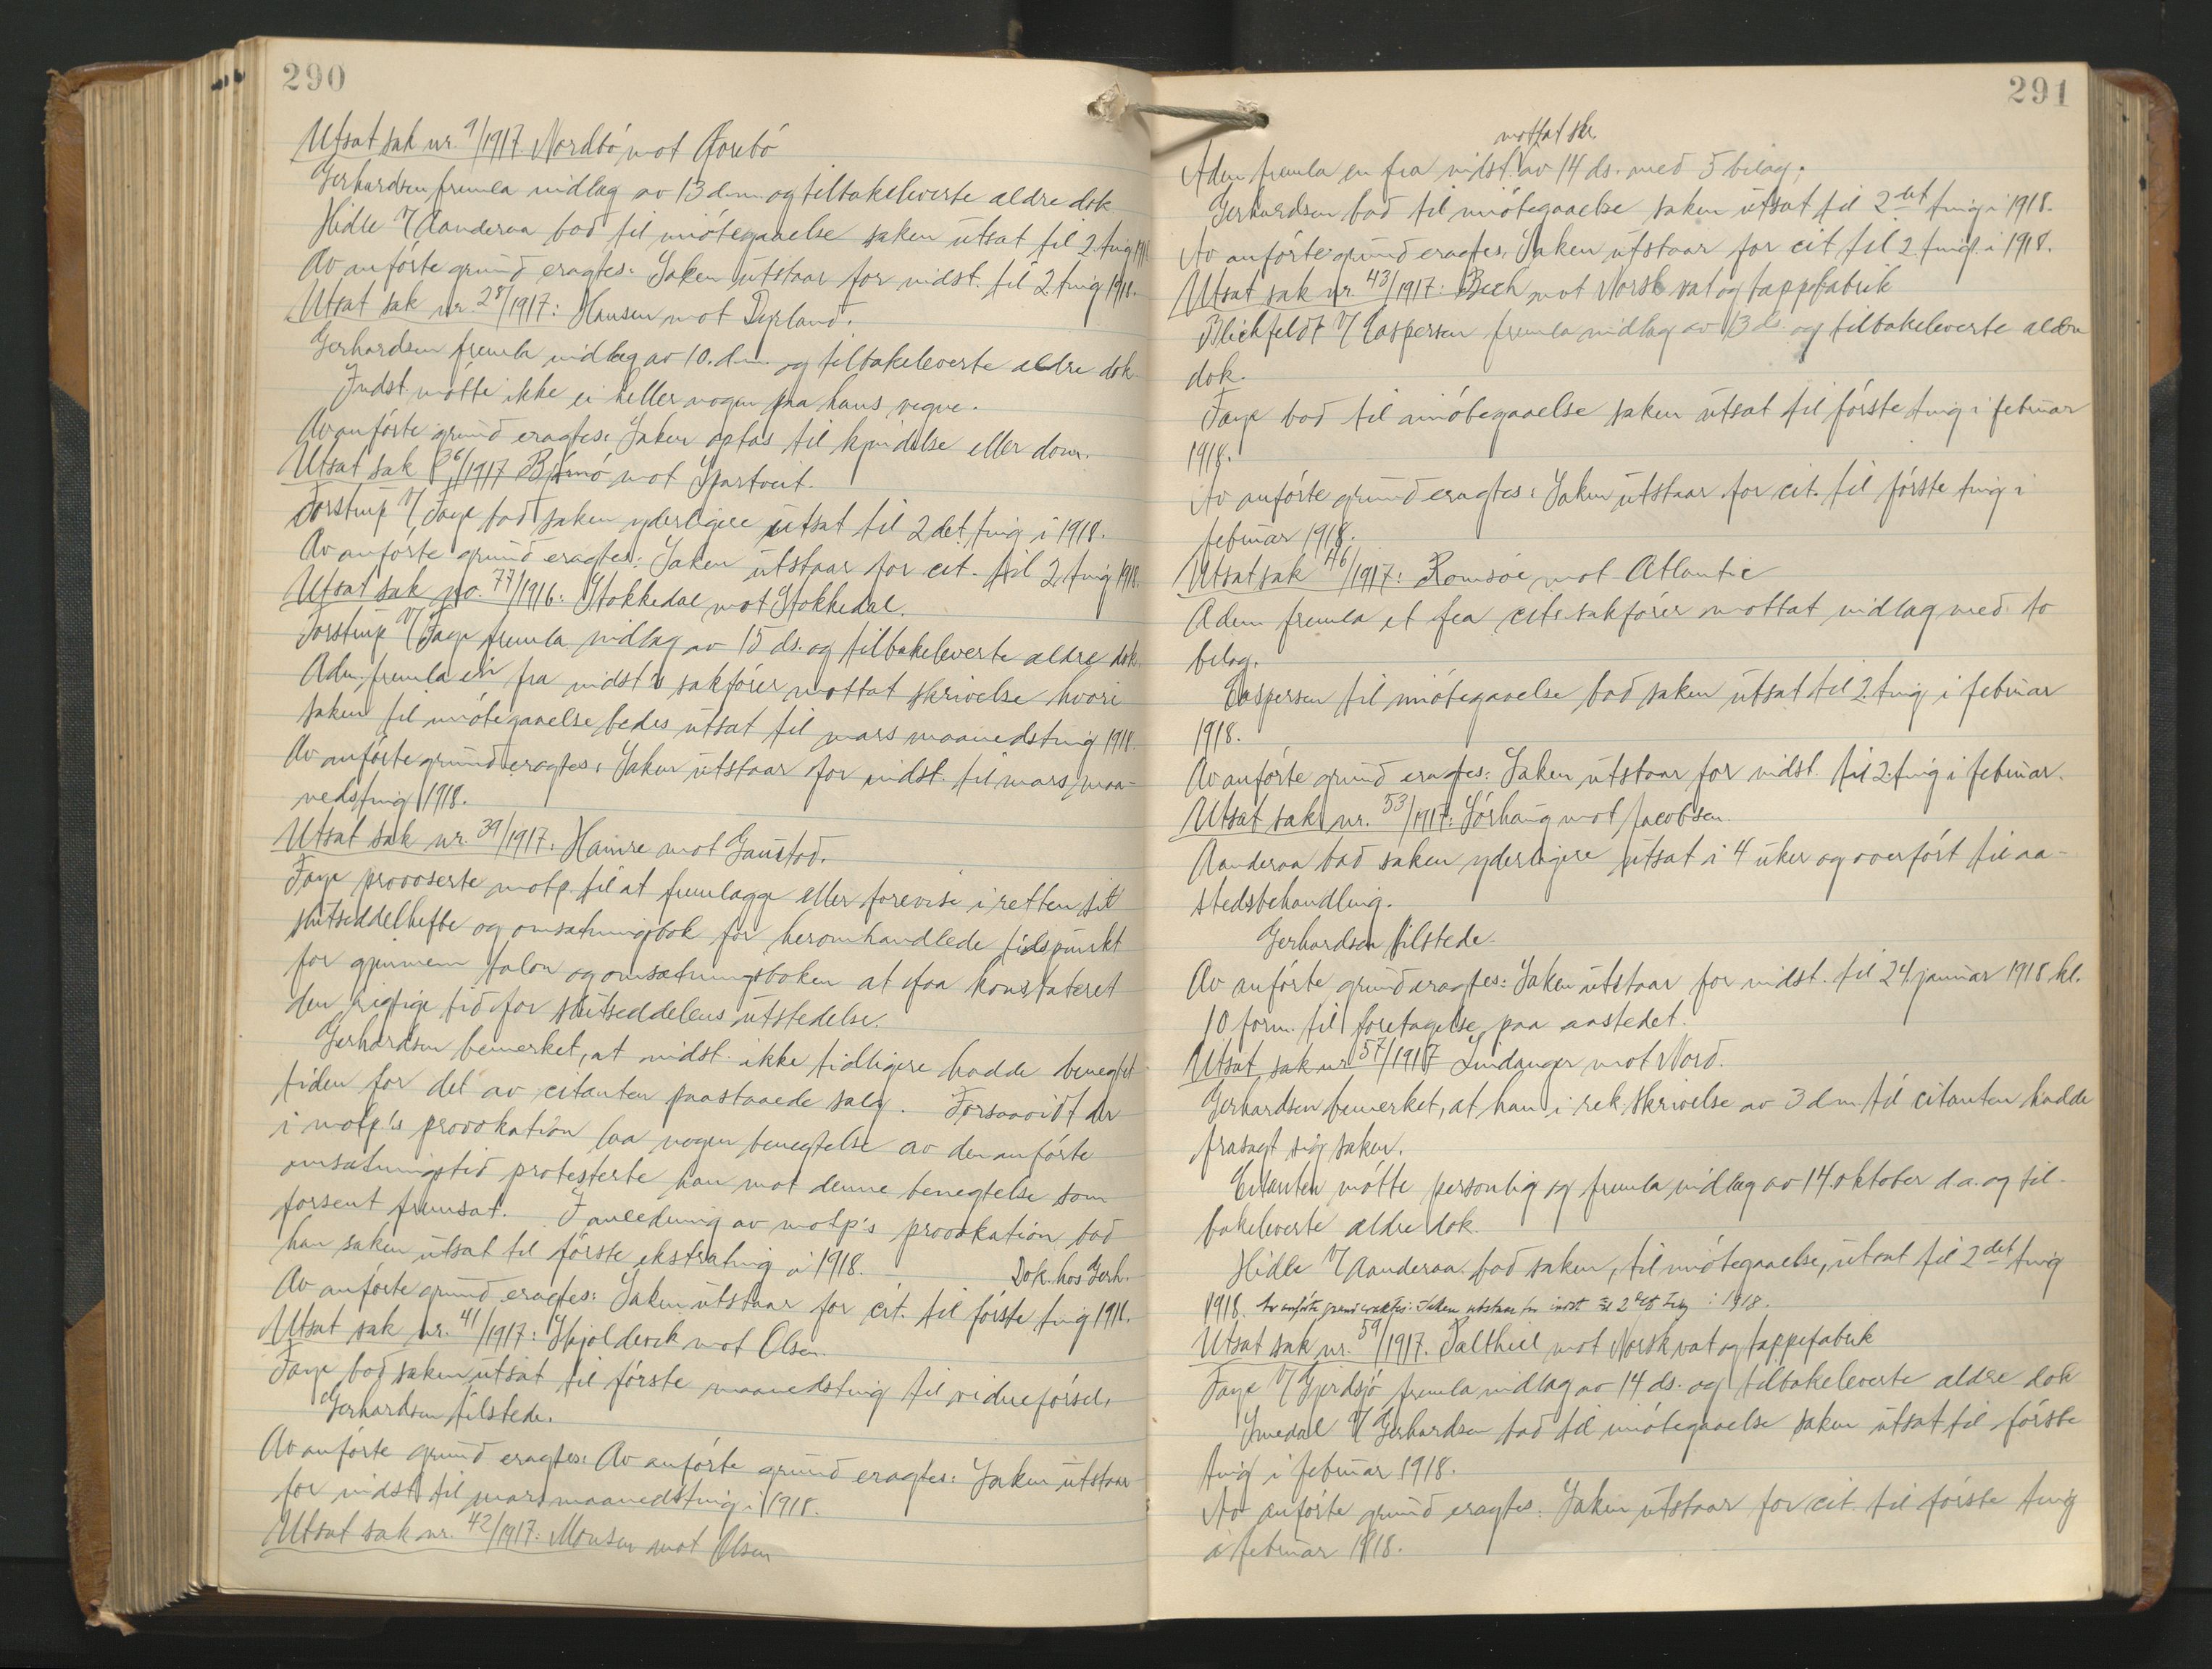 290
Utsat sak nr. 9/1917 Nordbö mot Forebö
Gerhardsen fremla indlæg av 13 d.m. og tilbakeleverte ældre dok
Hidle v/ Aanderaa bad til imötegaaelse saken utsat til 2. ting 191
Av anförte grund eragtes: Saken utstaar for indst. til 2. ting 1918.
Utsat sak nr. 28/1917: Hansen mot Dyrland.
Gerhardsen fremla indlæg av 10. d.m. og tilbakeleverte ældre dok
Indst. mötte ikke ei heller nogen paa hans vegne.
Av anförte grund eragtes: Saken optas til kjendelse eller dom.
Utsat sak 36/1917 Björnö mot Spartveit.
Torstrup v/ Faye bad saken yderligere utsat til 2det ting i 1918.
Av anförte grund eragtes: Saken utstaar for cit. til 2. ting 1918.
Utsat sak no. 77/1916: Stokkedal mot Stokkedal.
Torstrup v/ Faye fremla indlæg av 15 ds. og tilbakeleverte ældre dok.
Adm. fremla en fra indst's sakförer mottat skrivelse hvori
saken til imötegaaelse bedes utsat til mars maanedsting 1918.
Av anförte grund eragtes: Saken utstaar for indst. til mars maa-
nedsting 1918.
Utsat sak nr. 39/1917: Hamre mot Gaustad.
Faye provoserte motp. til at fremlægge eller forevise i retten sit
slutseddelhefte og omsætningsbok for heromhandlede tidspunkt
for gjennem talon og omsætningsboken at faa konstateret
den rigtige tid for slutseddelens utstedelse.
Gerhardsen bemerket, at indst. ikke tidligere hadde benegtet
tiden for det av citanten paastaaede salg. Forsaavidt der
i motp's provokation laa nogen benegtelse av den anförte
omsætningstid protesterte han mot denne benegtelse som
forsent fremsat. I anledning av motp's provokation bad
han saken utsat til förste ekstrating i 1918.
Dok. hos Gerh.
Av anförte grund eragtes: Saken utstaar for cit. til förste ting 1918.
Utsat sak nr. 41/1917: Skjoldevik mot Olsen.
Faye bad saken utsat til förste maanedsting til vidneförsel.
Gerhardsen tilstede.
Av anförte grund eragtes: Av anförte grund eragtes: Saken utstaar
for indst. til mars maanedsting i 1918.
Utsat sak nr. 42/1917: Monsen mot Olsen
291
mottat skr.
Adm. fremla en fra indst. av 14 ds. med 5 bilag.
Gerhardsen bad til imötegaaelse saken utsat til 2det ting i 1918.
Av anförte grund eragtes: Saken utstaar for cit til 2 ting i 1918.
Utsat sak nr. 43/1917: Bech mot Norsk vat og tæppefabrik
Blichfeldt v/ Caspersen fremla indlæg av 13 ds. og tilbakeleverte ældre
dok.
Faye bad til imötegaaelse saken utsat til förste ting i februar
1918.
Av anförte grund eragtes: Saken utstaar for cit. til förste ting i
februar 1918.
Utsat sak 46/1917: Romsöe mot Atlantic
Adm. fremla et fra cits sakförer mottat indlæg med to
bilag.
Caspersen til imötegaaelse bad saken utsat til 2. ting i februar
1918.
Av anförte grund eragtes: Saken utstaar for indst. til 2. ting i februar.
Utsat sak nr. 53/1917: Sörhaug mot Jacobsen.
Aanderaa bad saken yderligere utsat i 4 uker og overfört til aa-
stedsbehandling.
Gerhardsen tilstede.
Av anförte grund eragtes: Saken utstaar for indst. til 24. januar 1918 kl.
10 form. til foretagelse paa aastedet.
Utsat sak nr 57/1917 Lindanger mot Nord.
Gerhardsen bemerket, at han i rek. skrivelse av 3 d.m. til citanten hadde
frasagt sig saken.
Citanten mötte personlig og fremla indlæg av 14. oktober d.a. og til-
bakeleverte ældre dok.
Hidle v/ Aanderaa bad saken, til imötegaaelse, utsat til 2det ting
1918. Av anförte grund eragtes: Saken utstaar for indst til 2det ting i 1918.
Utsat sak nr. 59/1917. Palthiel mot Norsk vat og tæppefabrik
Faye v/ Gjerdsjö fremla indlæg av 14 ds. og tilbakeleverte ældre dok
Smedal v/ Gerhardsen bad til imötegaaelse saken utsat til förste
ting i februar 1918.
Av anförte grund eragtes: Saken utstaar for cit. til förste ting
i februar 1918.